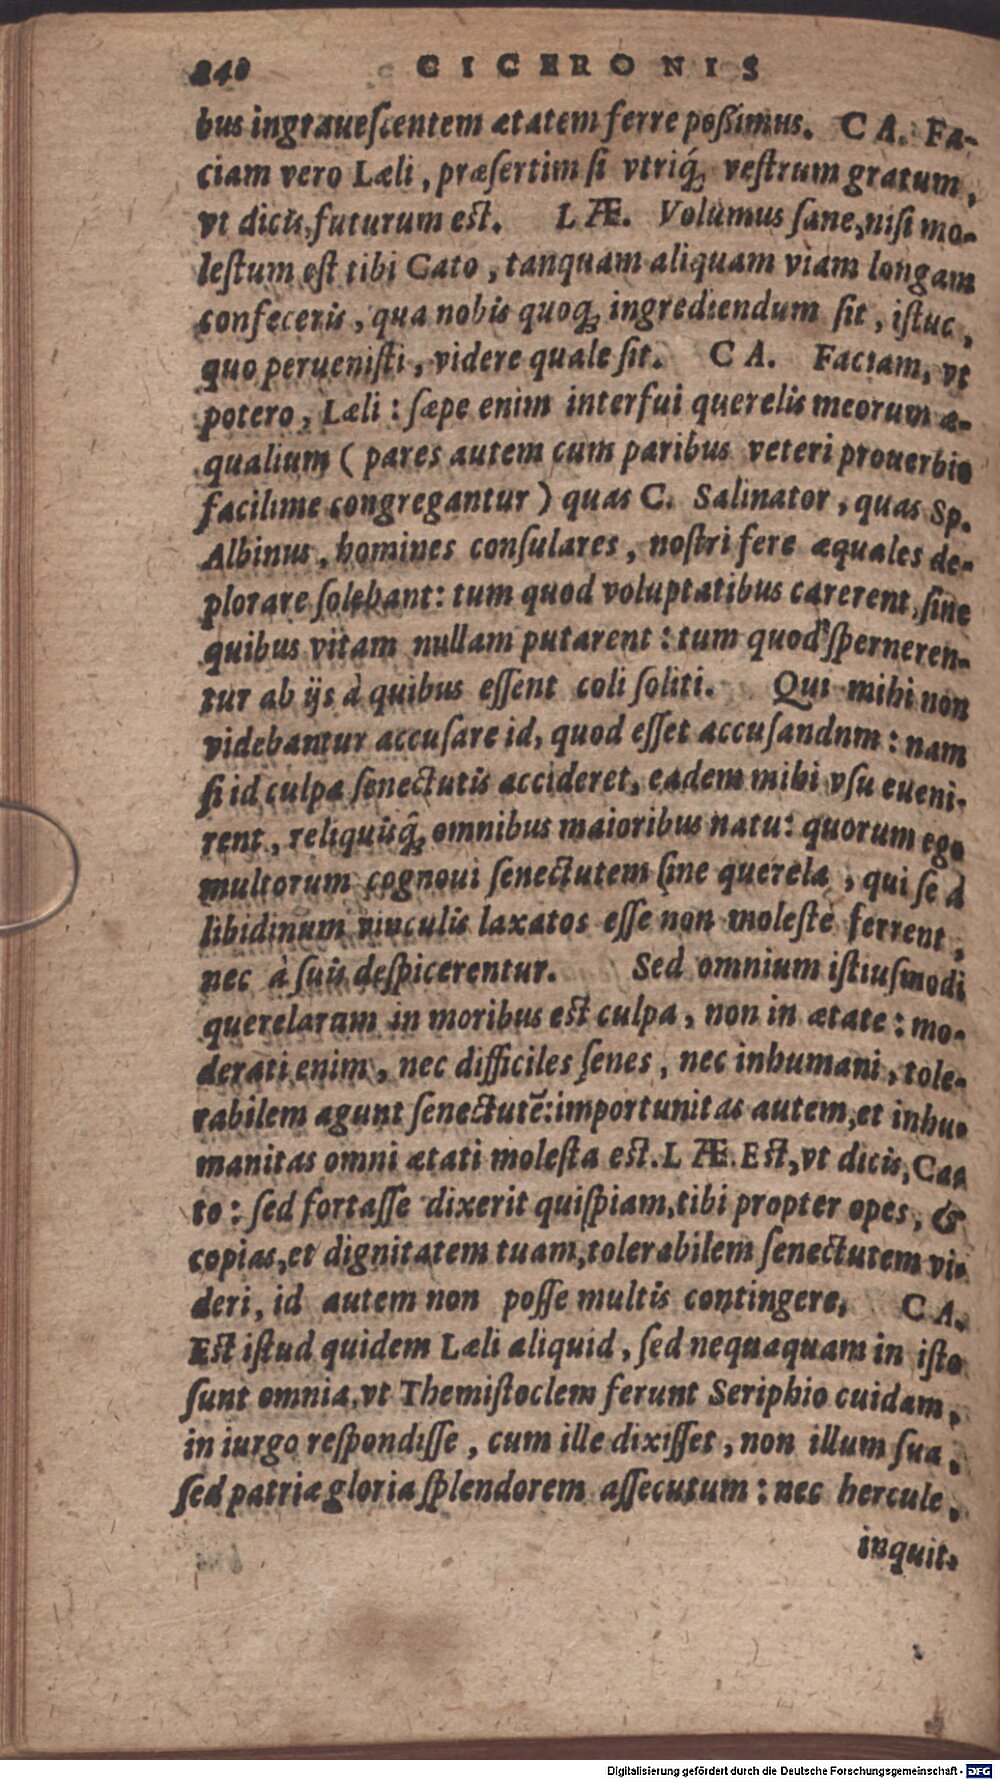 240 CICERONIS
bus ingrauescentem ætatem ferre poßimus. CA. Fa-
ciam vero Læli, præsertim si vtriq́; vestrum gratum,
vt dicis, futurum est. LÆ. Volumus sane, nisi mo-
lestum est tibi Cato, tanquam aliquam viam longam
confeceris, qua nobis quoq; ingrediendum sit, istuc,
quo peruenisti, videre quale sit. CA. Faciam, vt
potero, Læli: sæpe enim interfui querelis meorum æ-
qualium (pares autem cum paribus veteri prouerbio
facilime congregantur) quas C. Salinator, quas Sp.
Albinus, homines consulares, nostri fere æquales de-
plorare solebant: tum quod voluptatibus carerent, sine
quibus vitam nullam putarent: tum quod sperneren-
tur ab ijs à quibus essent coli soliti. Qui mihi non
videbantur accusare id, quod esset accusandnm: nam
si id culpa senectutis accideret, eadem mihi vsu eueni-
rent, reliquisq́; omnibus maioribus natu: quorum ego
multorum cognoui senectutem sine querela, qui se à
libidinum vinculis laxatos esse non molestè ferrent,
nec à suis despicerentur. Sed omnium istiusmodi
querelarum in moribus est culpa, non in ætate: mo-
derati enim, nec difficiles senes, nec inhumani, tole-
rabilem agunt senectutē: importunitas autem, et inhu-
manitas omni ætati molesta est. LÆ. Est, vt dicis, Ca-
to: sed fortasse dixerit quispiam, tibi propter opes, &
copias, et dignitatem tuam, tolerabilem senectutem vi-
deri, id autem non posse multis contingere. CA.
Est istud quidem Læli aliquid, sed nequaquam in isto
sunt omnia, vt Themistoclem ferunt Seriphio cuidam,
in iurgo respondisse, cum ille dixisset, non illum sua,
sed patriæ gloria splendorem assecutum: nec hercule,
inquit,
Digitalisierung gefördert durch die Deutsche Forschungsgemeinschaft - DFG